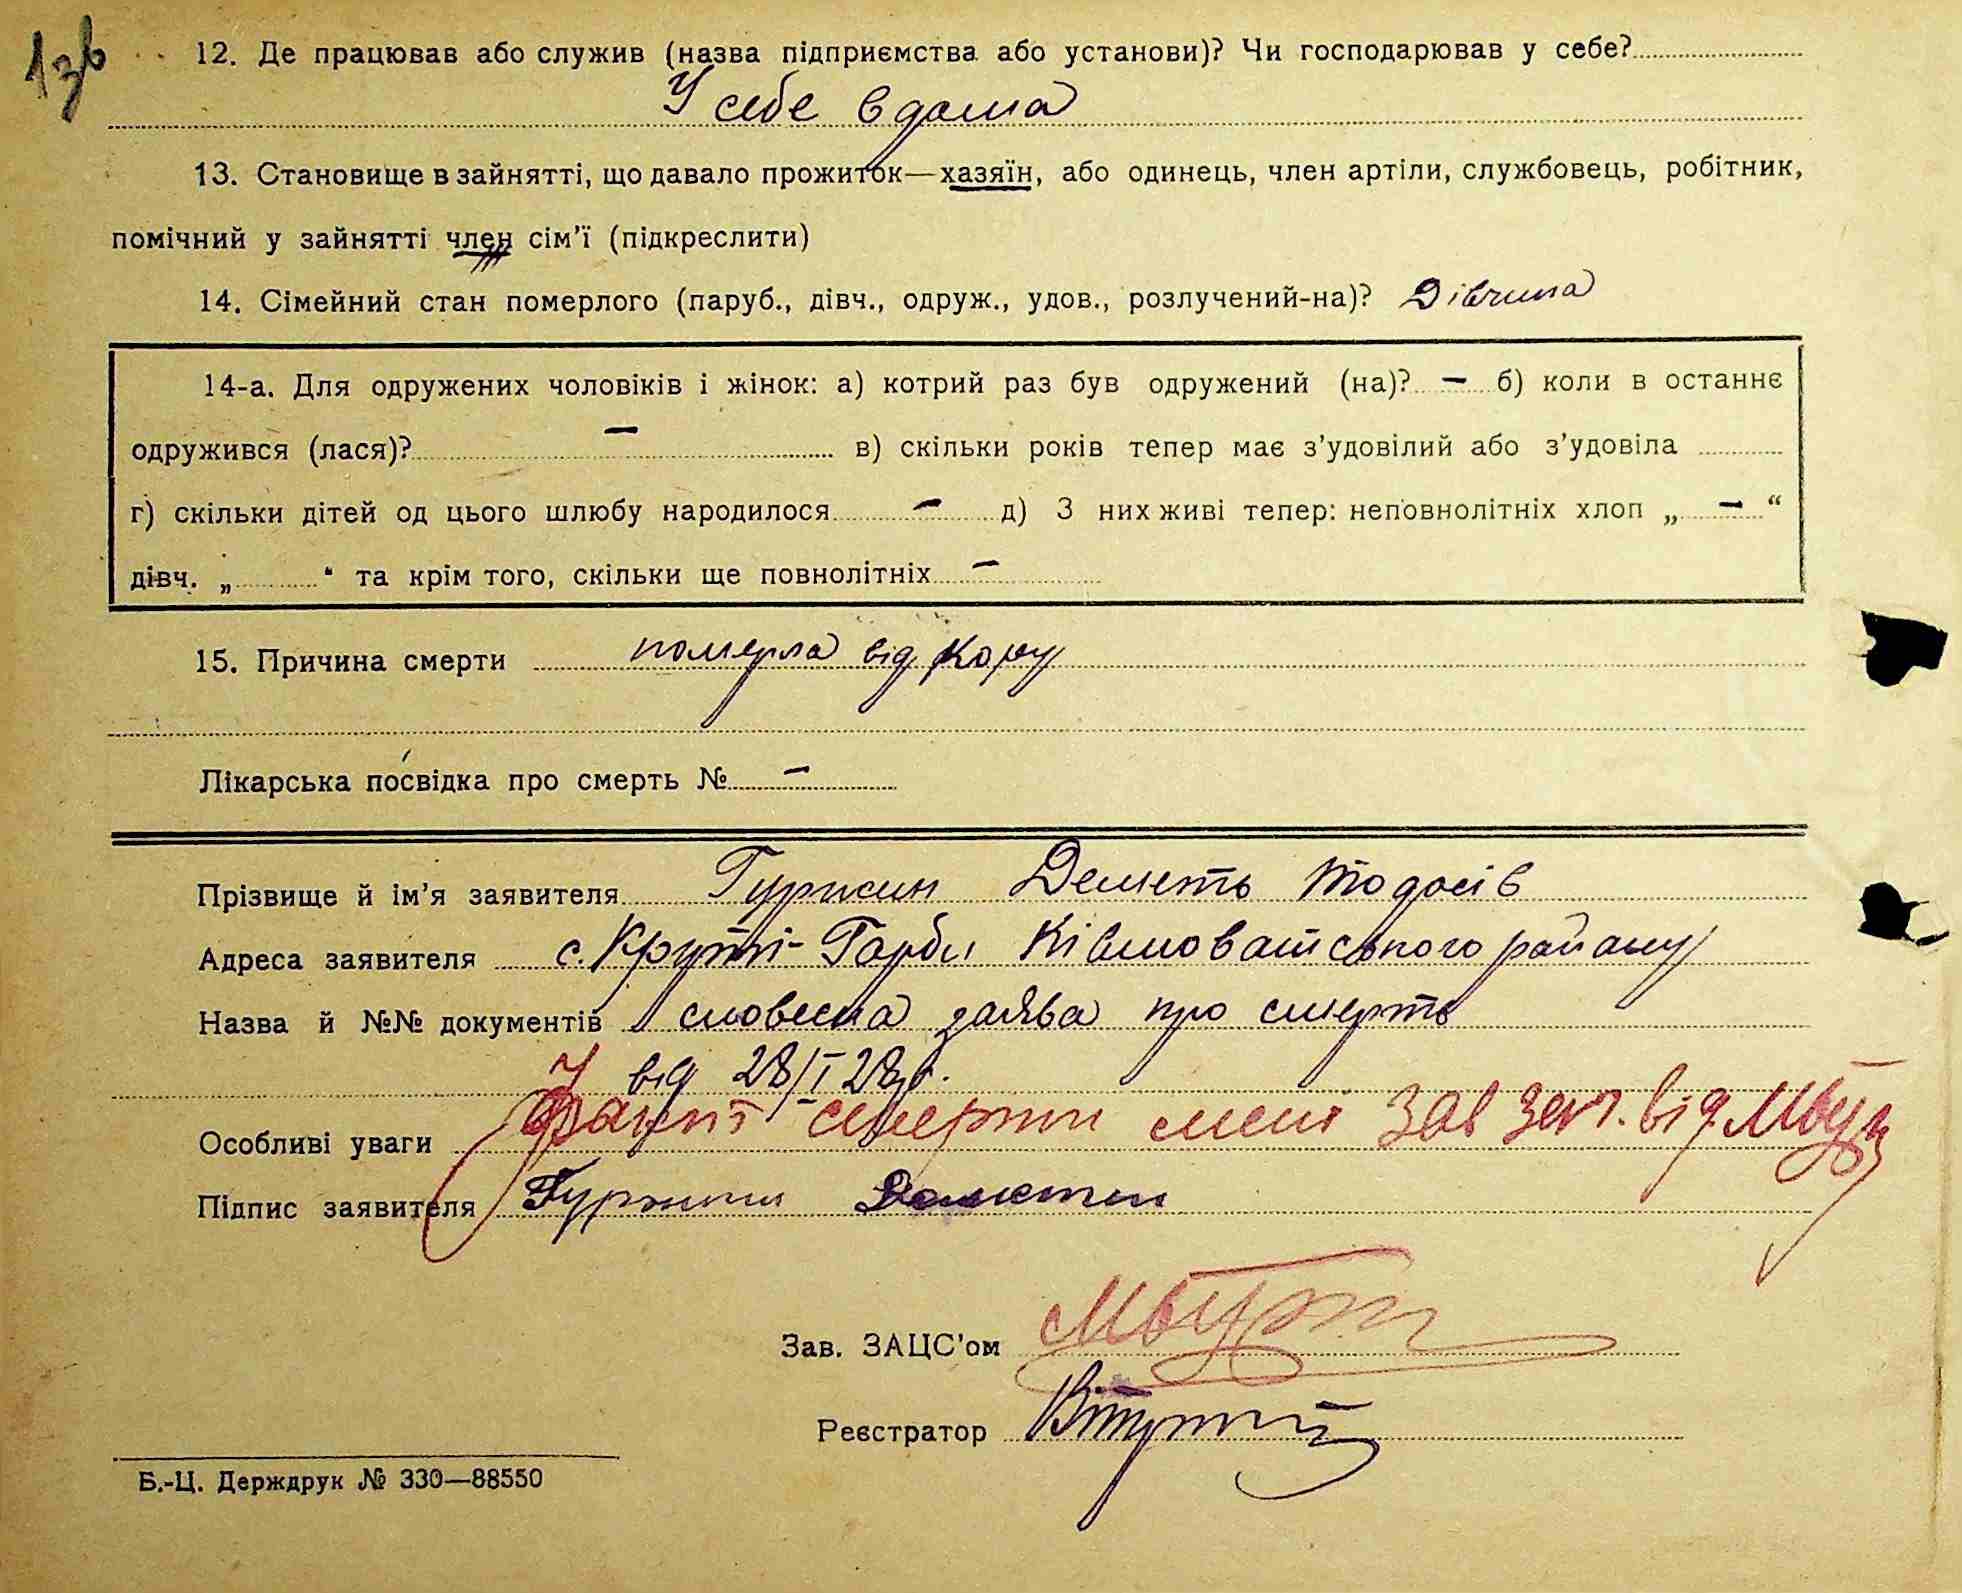 13б
12. Де працював або служив (назва підприємства або установи)? Чи господарював у себе?
У себе вдома
13. Становище в зайнятті, що давало прожиток—хазяїн, або одинець, член артіли, службовець, робітник,
помічний у зайнятті член сім'ї (підкреслити)
14. Сімейний стан померлого (паруб., дівч., одруж., удов., розлучений-на)? Дівчина
14-а. Для одружених чоловіків і жінок: а) котрий раз був одружений (на)? — б) коли в останнє
одружився (лася)? — в) скільки років тепер має з'удовілий або з'удовіла
г) скільки дітей од цього шлюбу народилося — д) З них живі тепер: неповнолітніх хлоп „ — “
дівч. „ “ та крім того, скільки ще повнолітніх —
15. Причина смерти померла від Кору
Лікарська посвідка про смерть № —
Прізвище й ім'я заявителя Гуржин Деметь Тодосів
Адреса заявителя с. Круті-Горби Ківшоватського району
Назва й №№ документів словесна заява про смерть
від 28/I 28 р.
Особливі уваги факт смерти мені
Підпис заявителя Гуржин
Зав. ЗАЦС'ом
Реєстратор
Б.-Ц. Держдрук № 330—88550